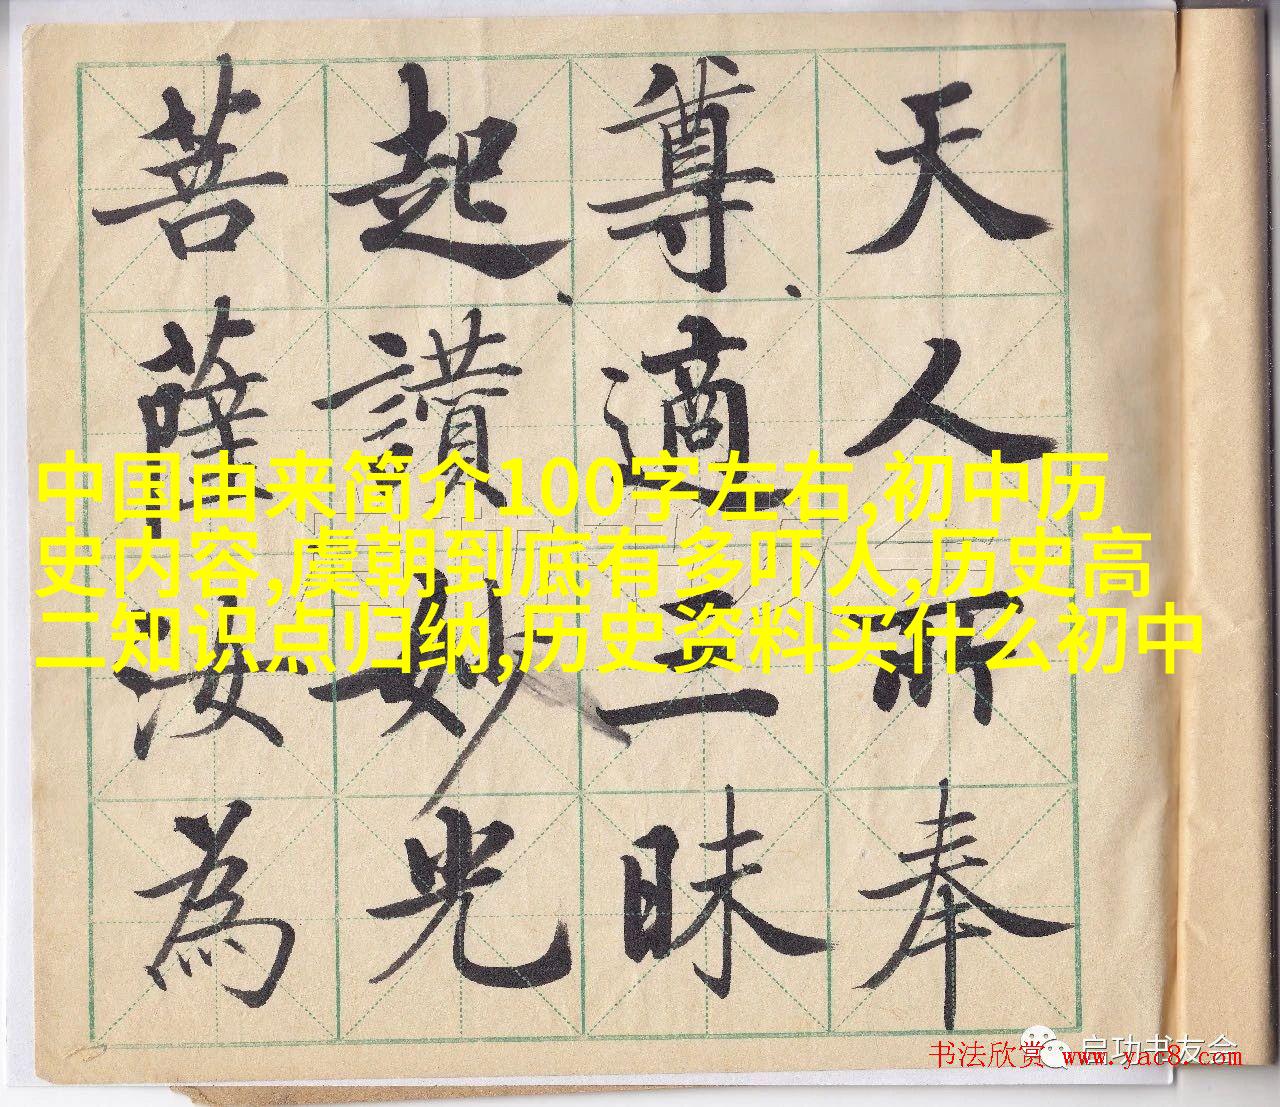 天人所奉
尊適三昧
起讚妙光
菩薩汝為
中国由来简介100字左右,初中历
史内容,虞朝到底有多吓人,历史高
二知识点归纳,历史资料买什么初中
启功书友会
书法欣赏 www.yac8.com